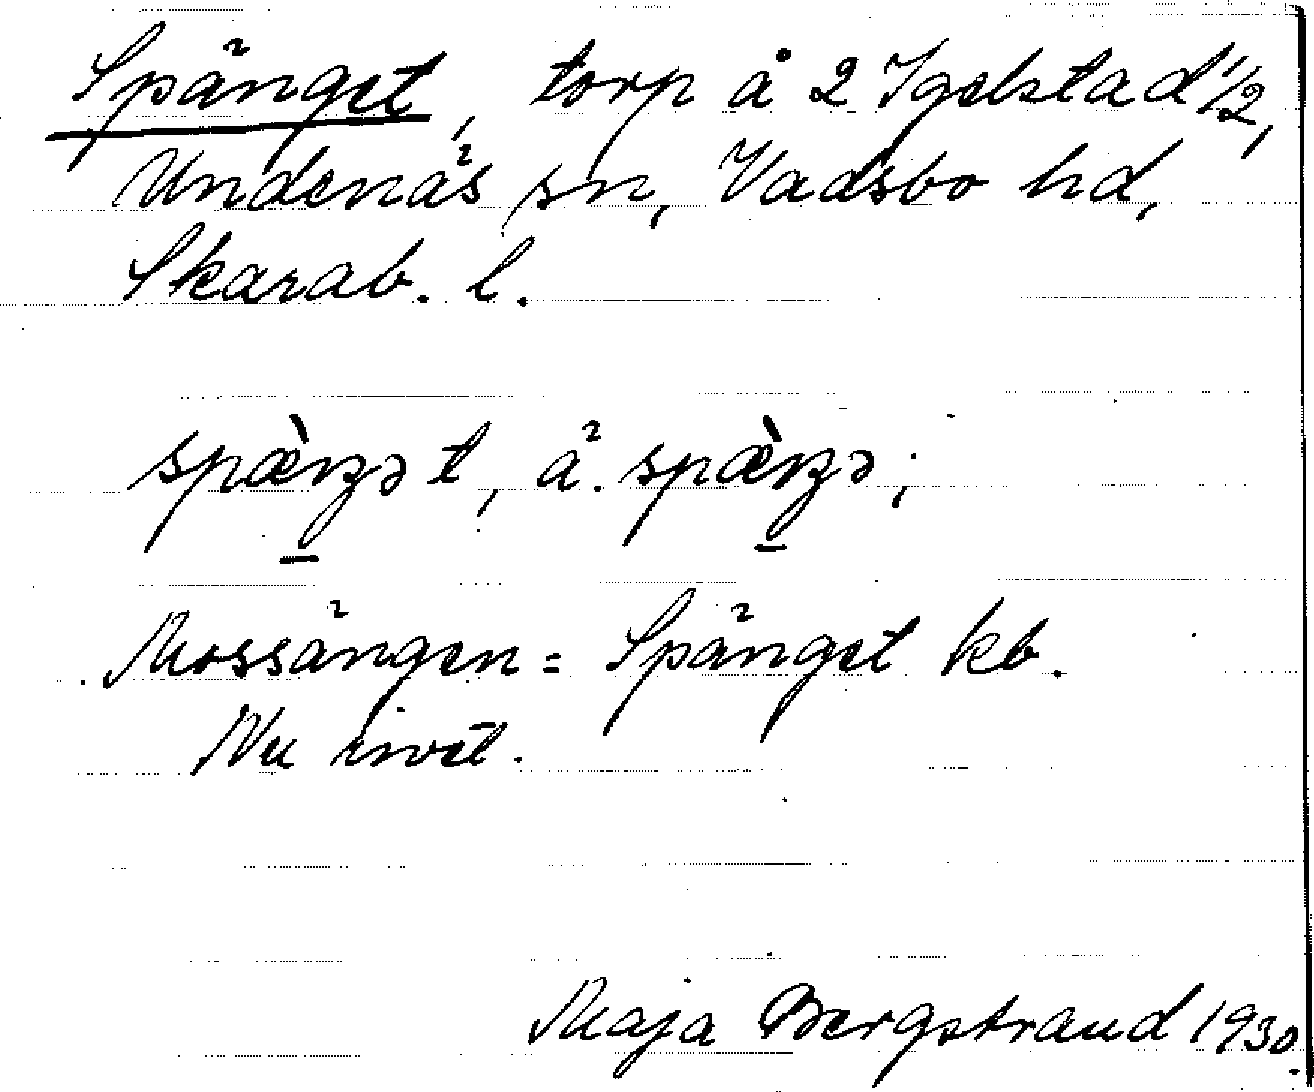 Spänget, torp å 2 Igelstad 1/2,
Undenäs sn, Vadsbo hd,
Skarab. l.
spæ̀ŋət, ä. spæ̀ŋə;
Mossängen = Spänget kb.
Nu rivet.
Maja Bergstrand 1930.